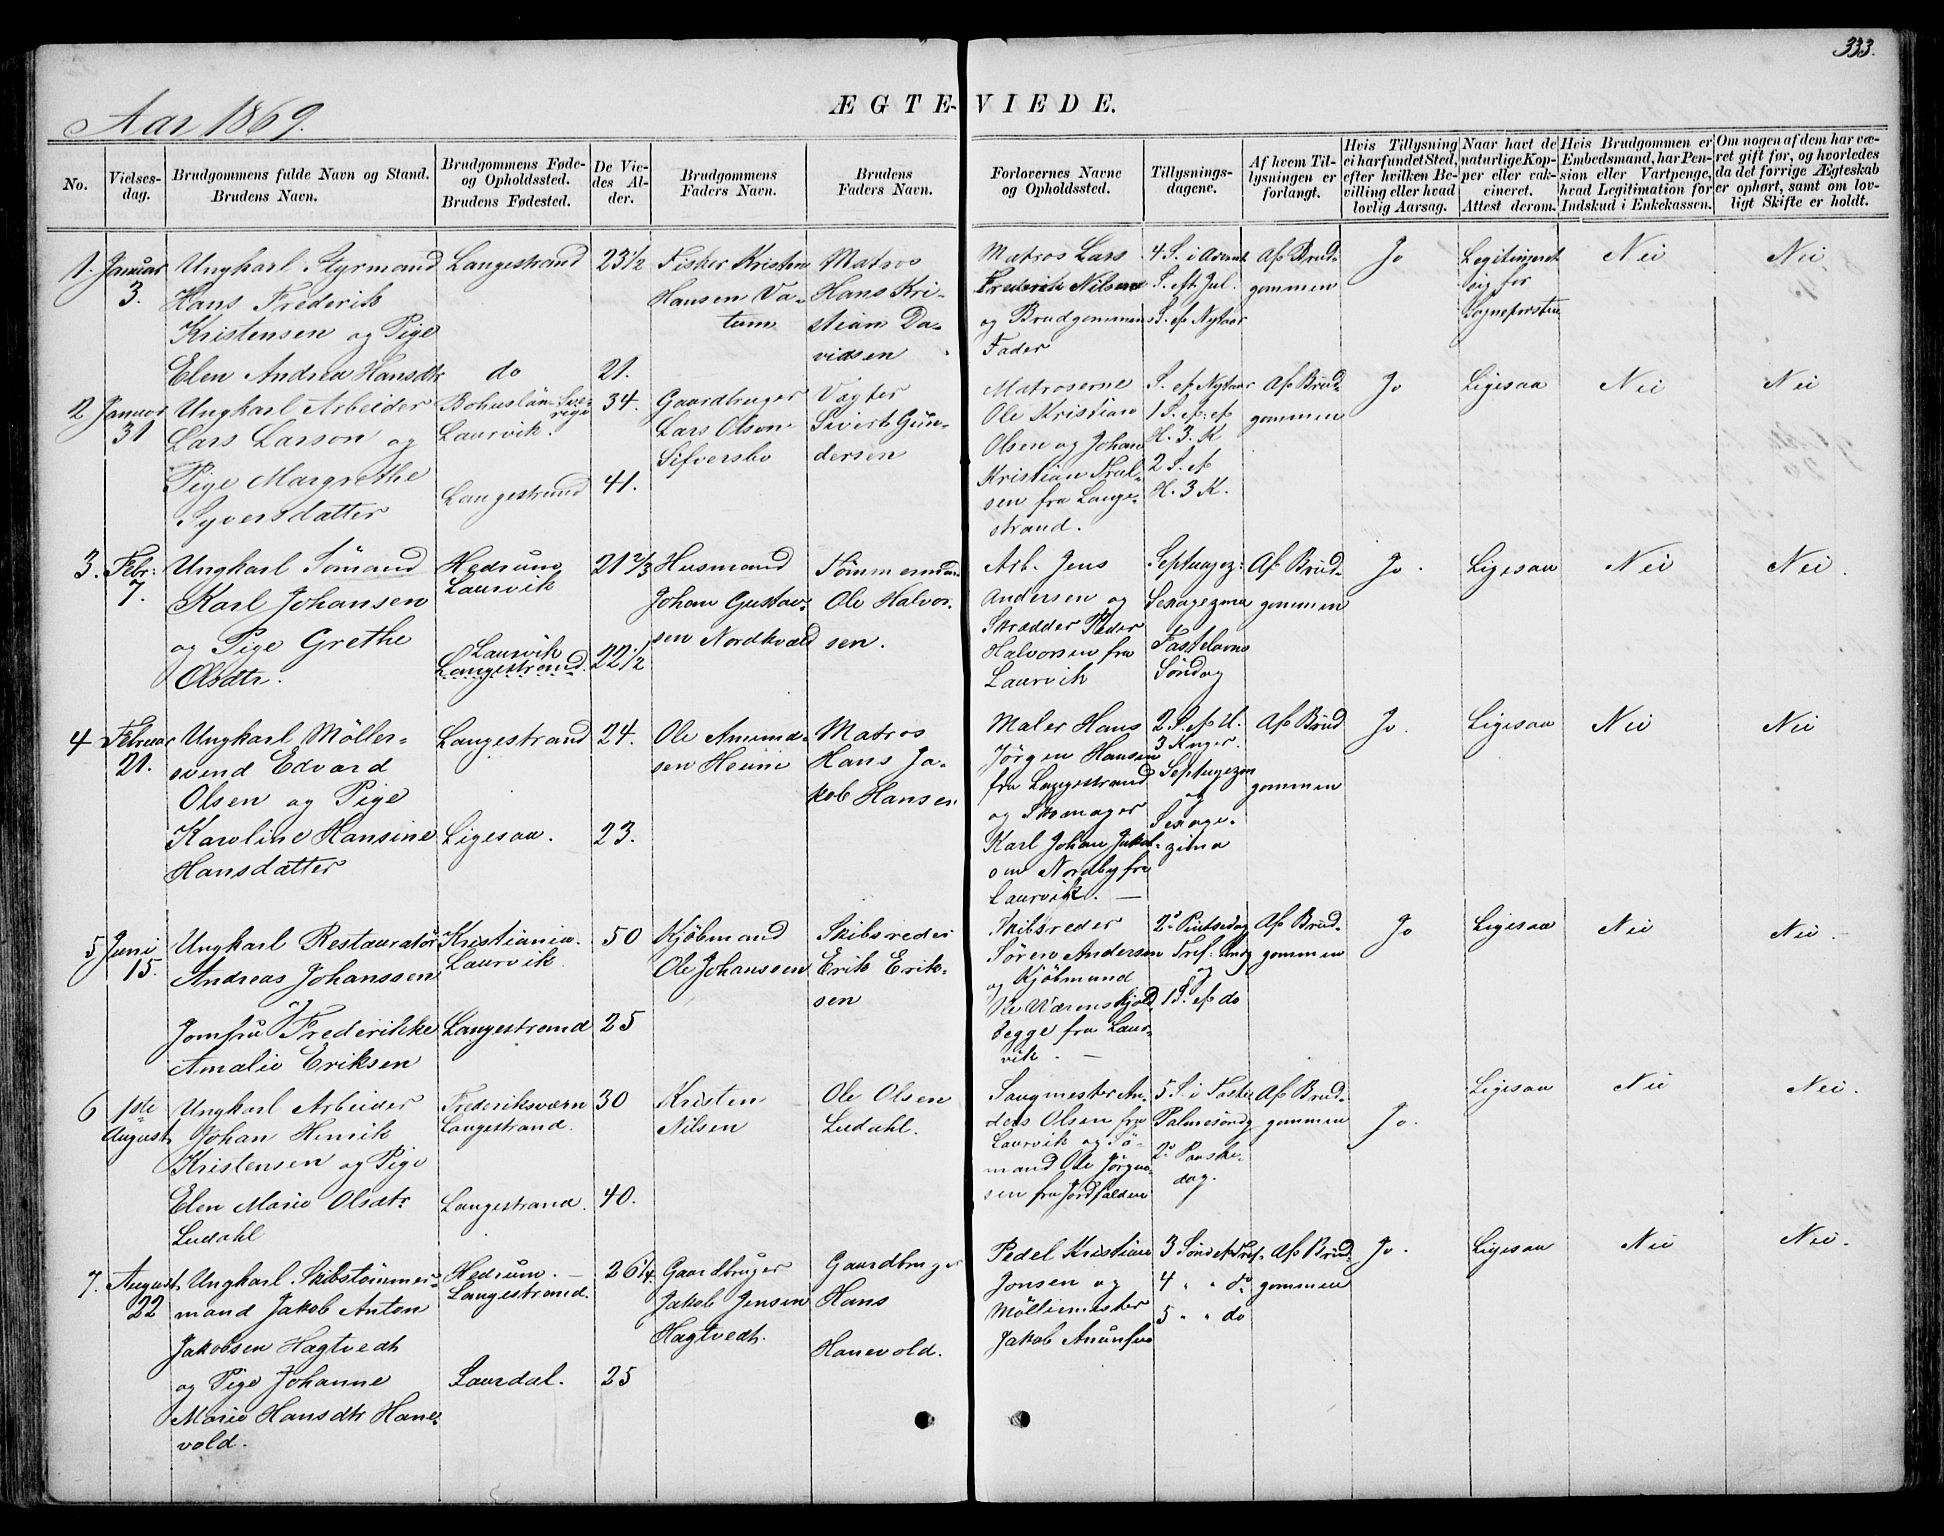 333.
Aar 1869.
ÆGTE-VIEDE.
No.
Vielses-
dag.
Brudgommens fulde Navn og Stand.
Brudens Navn.
Brudgommens Føde-
og Opholdssted.
Brudens Fødested.
De Vie-
des Al-
der.
Brudgommens
Faders Navn.
Brudens
Faders Navn.
Forlovernes Navne
og Opholdssted.
Tillysnings-
dagene.
Af hvem Til-
lysningen er
forlangt.
Hvis Tillysning
ei har fundet Sted,
efter hvilken Be-
villing eller hvad
lovlig Aarsag.
Naar havt de
naturlige Kop-
per eller vak-
cineret.
Attest derom.
Hvis Brudgommen er
Embedsmand, har Pen-
sion eller Vartpenge,
hvad Legitimation for
Indskud i Enkekassen.
Om nogen af dem har væ-
ret gift før, og hvorledes
da det forrige Ægteskab
er ophørt, samt om lov-
ligt Skifte er holdt.
1. Januar
3.
Ungkarl Styrmand
Hans Frederik
Kristensen og Pige
Elen Andrea Hansdtr
Langestrand
do
23 1/2
21.
Fisker Kristen
Hansen Va-
tum
Matros
Hans Kri-
stian Da-
vidsen
Matros Lars
Frederik Nilsen
og Brudgommens
Fader
4. S. i Advent
S. eft Jul.
S. ef Nytaar
Af Brud-
gommen
Jo
Legitimeret
sig for
Sogneprsten
Nei
Nei
2 Januar
31
Ungkarl Arbeider
Lars Larson og
Pige Margrethe
Syversdatter
Bohuslän-Sve-
rige
Laurvik.
Langestrand
34.
41.
Gaardbruger
Lars Olson
Sifversbo
Vægter
Sivert Gun-
dersen
Matroserne
Ole Kristian
Olsen og Johan
Kristian
sen fra Lange-
strand.
S. ef Nytaar
1 S. ef: ef
H. 3. K
2 S. ef
H. 3 K.
Af Brud-
gommen
Jo
Ligesaa
Nei
Nei
3. Febr:
7.
Ungkarl Sömand
Karl Johansen
og Pige Grethe
Olsdtr.
Hedrum
Laurvik
Laurvik
Langestrand.
21 2/3
22 1/2
Husmand
Johan Gustav-
sen Nordkvæld
Tömmermdn
Ole Halvor-
sen.
Arb. Jens
Andersen og
Skrædder Peder
Halvorsen fra
Laurvik
Septuagez:
Sexagezima
Fastelavns
Söndag
Af Brud-
gommen
Jo.
Ligesaa
Nei
Nei.
4 Februar
21.
Ungkarl Möller-
svend Edvard
Olsen og Pige
Karoline Hansine
Hansdatter
Langestrand
Ligesaa.
24.
23.
Ole Amund-
sen Heimi
Matros
Hans Ja-
kob Hansen
Maler Hans
Jörgen Hansen
fra Langestrand
og Skomager
Karl Johan Jakob-
sen Nordby fra
Laurvik. —
2. S. ef H.
3 Konger.
Septuagezm
og
Sexage-
zima
Af Brud
gommen
Jo.
Ligesaa
Nei
Nei
5 Juni
15.
Ungkarl Restauratör
Andreas Johanssen
og
Jomfru Frederikke
Amalie Eriksen
Kristiania.
Laurvik
Langestrand
50
25
Kjöbmand
Ole Johanssen
Skibsreder
Erik Erik-
sen
Skibsreder
Sören Andersen
og Kjöbmand
Værenskjold,
begge fra Laur-
vik. —
2. Pintsedag
Tref: Sndg
og
1 S. ef do
Af Brud-
gommen
Jo
Ligesaa
Nei
Nei.
6 1ste
August
Ungkarl Arbeider
Johan Henrik
Kristensen og Pige
Elen Marie Olsdtr
Ludahl
Frederiksværn
Langestrand.
Langestrand.
30
40.
Kristen
Nilsen
Ole Olsen
Ludahl.
Saugmester An-
ders Olsen fra
Laurvik og Sö-
mand Ole Jörgen-
sen fra Jordfalden
5 S. i Faste
Palmesöndg
2. Paaske-
dag.
Af Brud-
gommen
Jo.
Ligesaa
Nei
Nei.
7. August
22
Ungkarl Skibstömmer-
mand Jakob Anton
Jakobsen Hagtvedt
og Pige Johanne
Marie Hansdtr Hane-
vold.
Hedrum. —
Langestrand.
Laurdal.
26 1/4.
25
Gaardbruger
Jakob Jensen
Hagtvedt.
Gaardbruger
Hans
Hanevold.
Pedel Kristian
Jonsen og
Möllemester
Jakob
3 Sönd ef Tref.
4 " " do
5 " " do
Af Brud-
gommen
Jo.
Ligesaa
Nei
Nei.